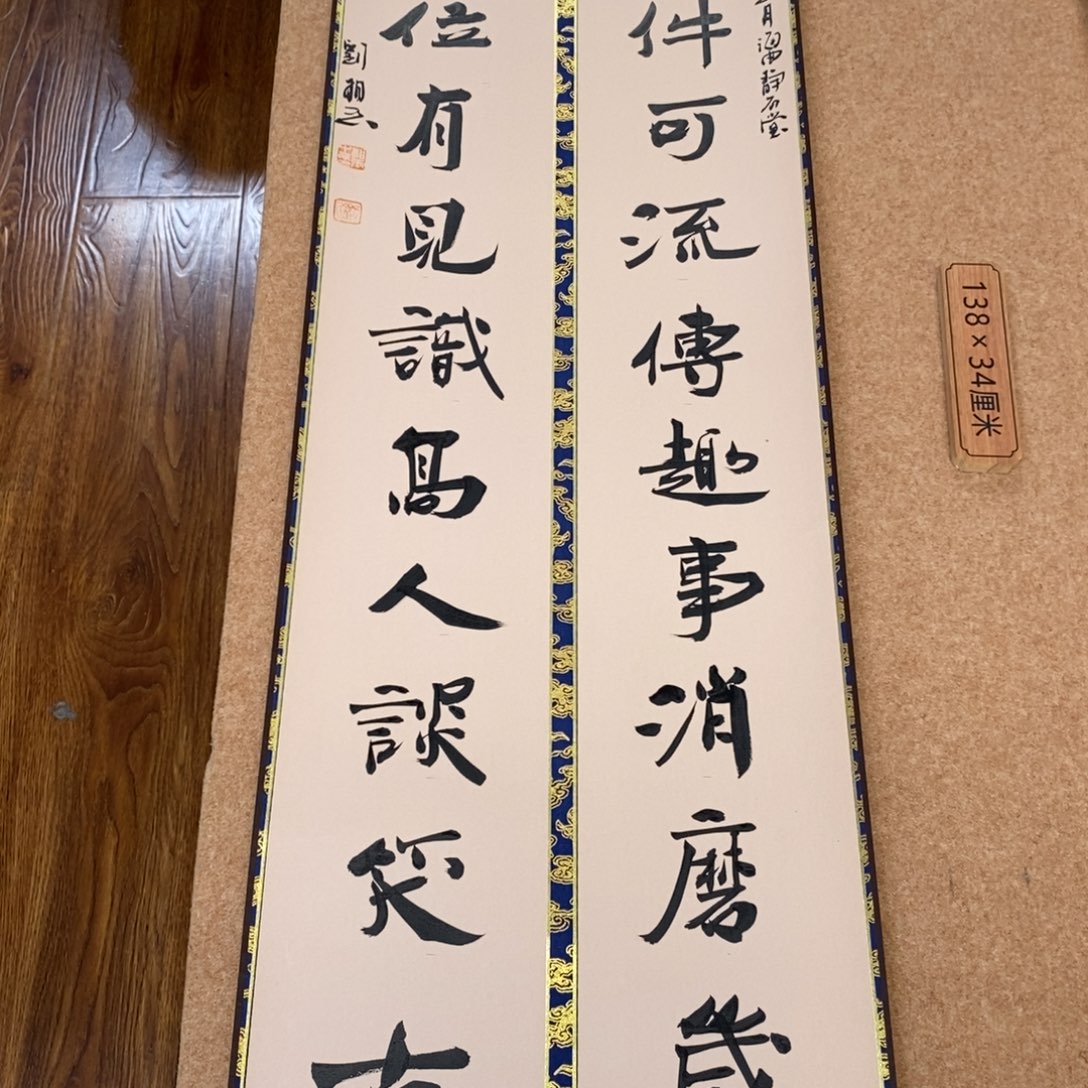 件可流傳趣事消磨歲
位有見識高人談笑
月
靜石堂
劉
138×34厘米